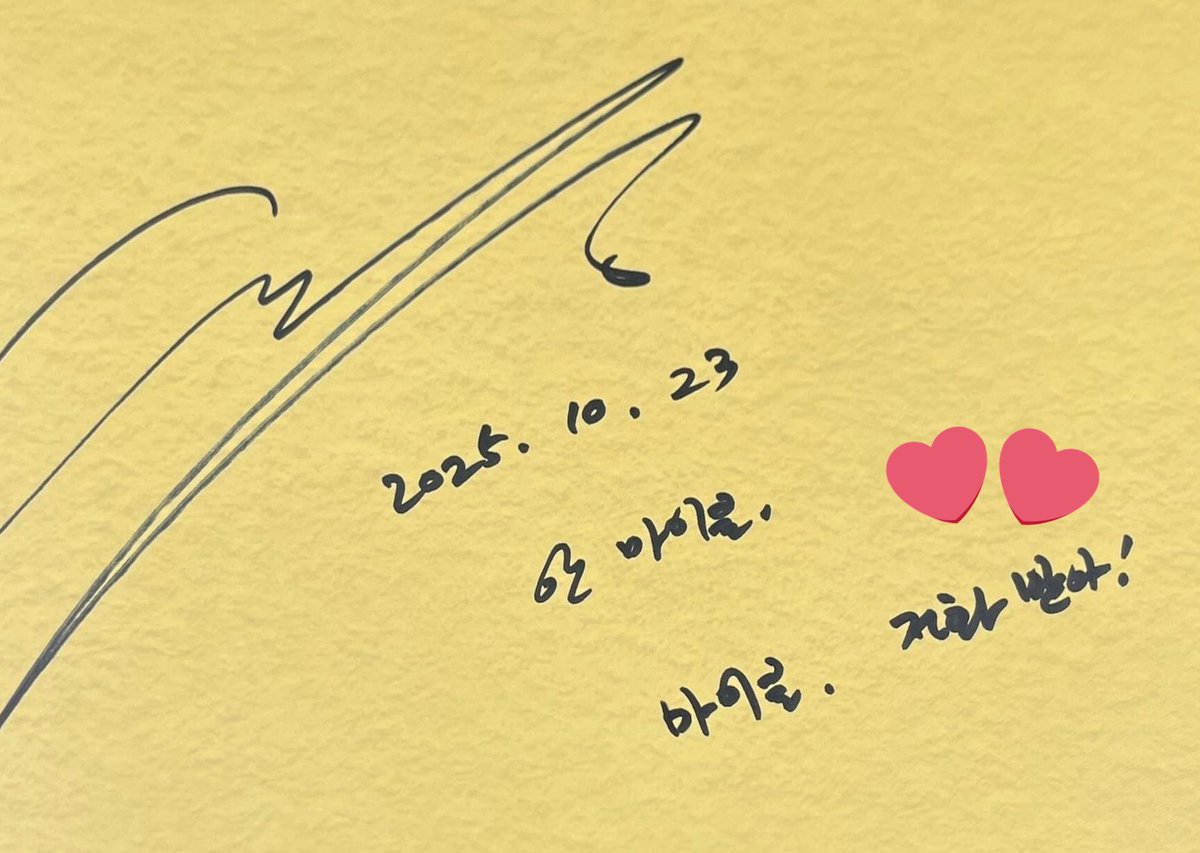 2025. 10. 23
마이클.
마이클. 전화 받아!